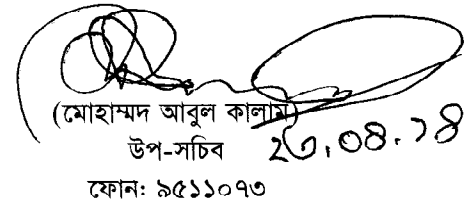 (মোহাম্মদ আবুল কালাম)
উপ-সচিব ২৩.০৪.১৪
ফোন: ৯৫১১০৭৩